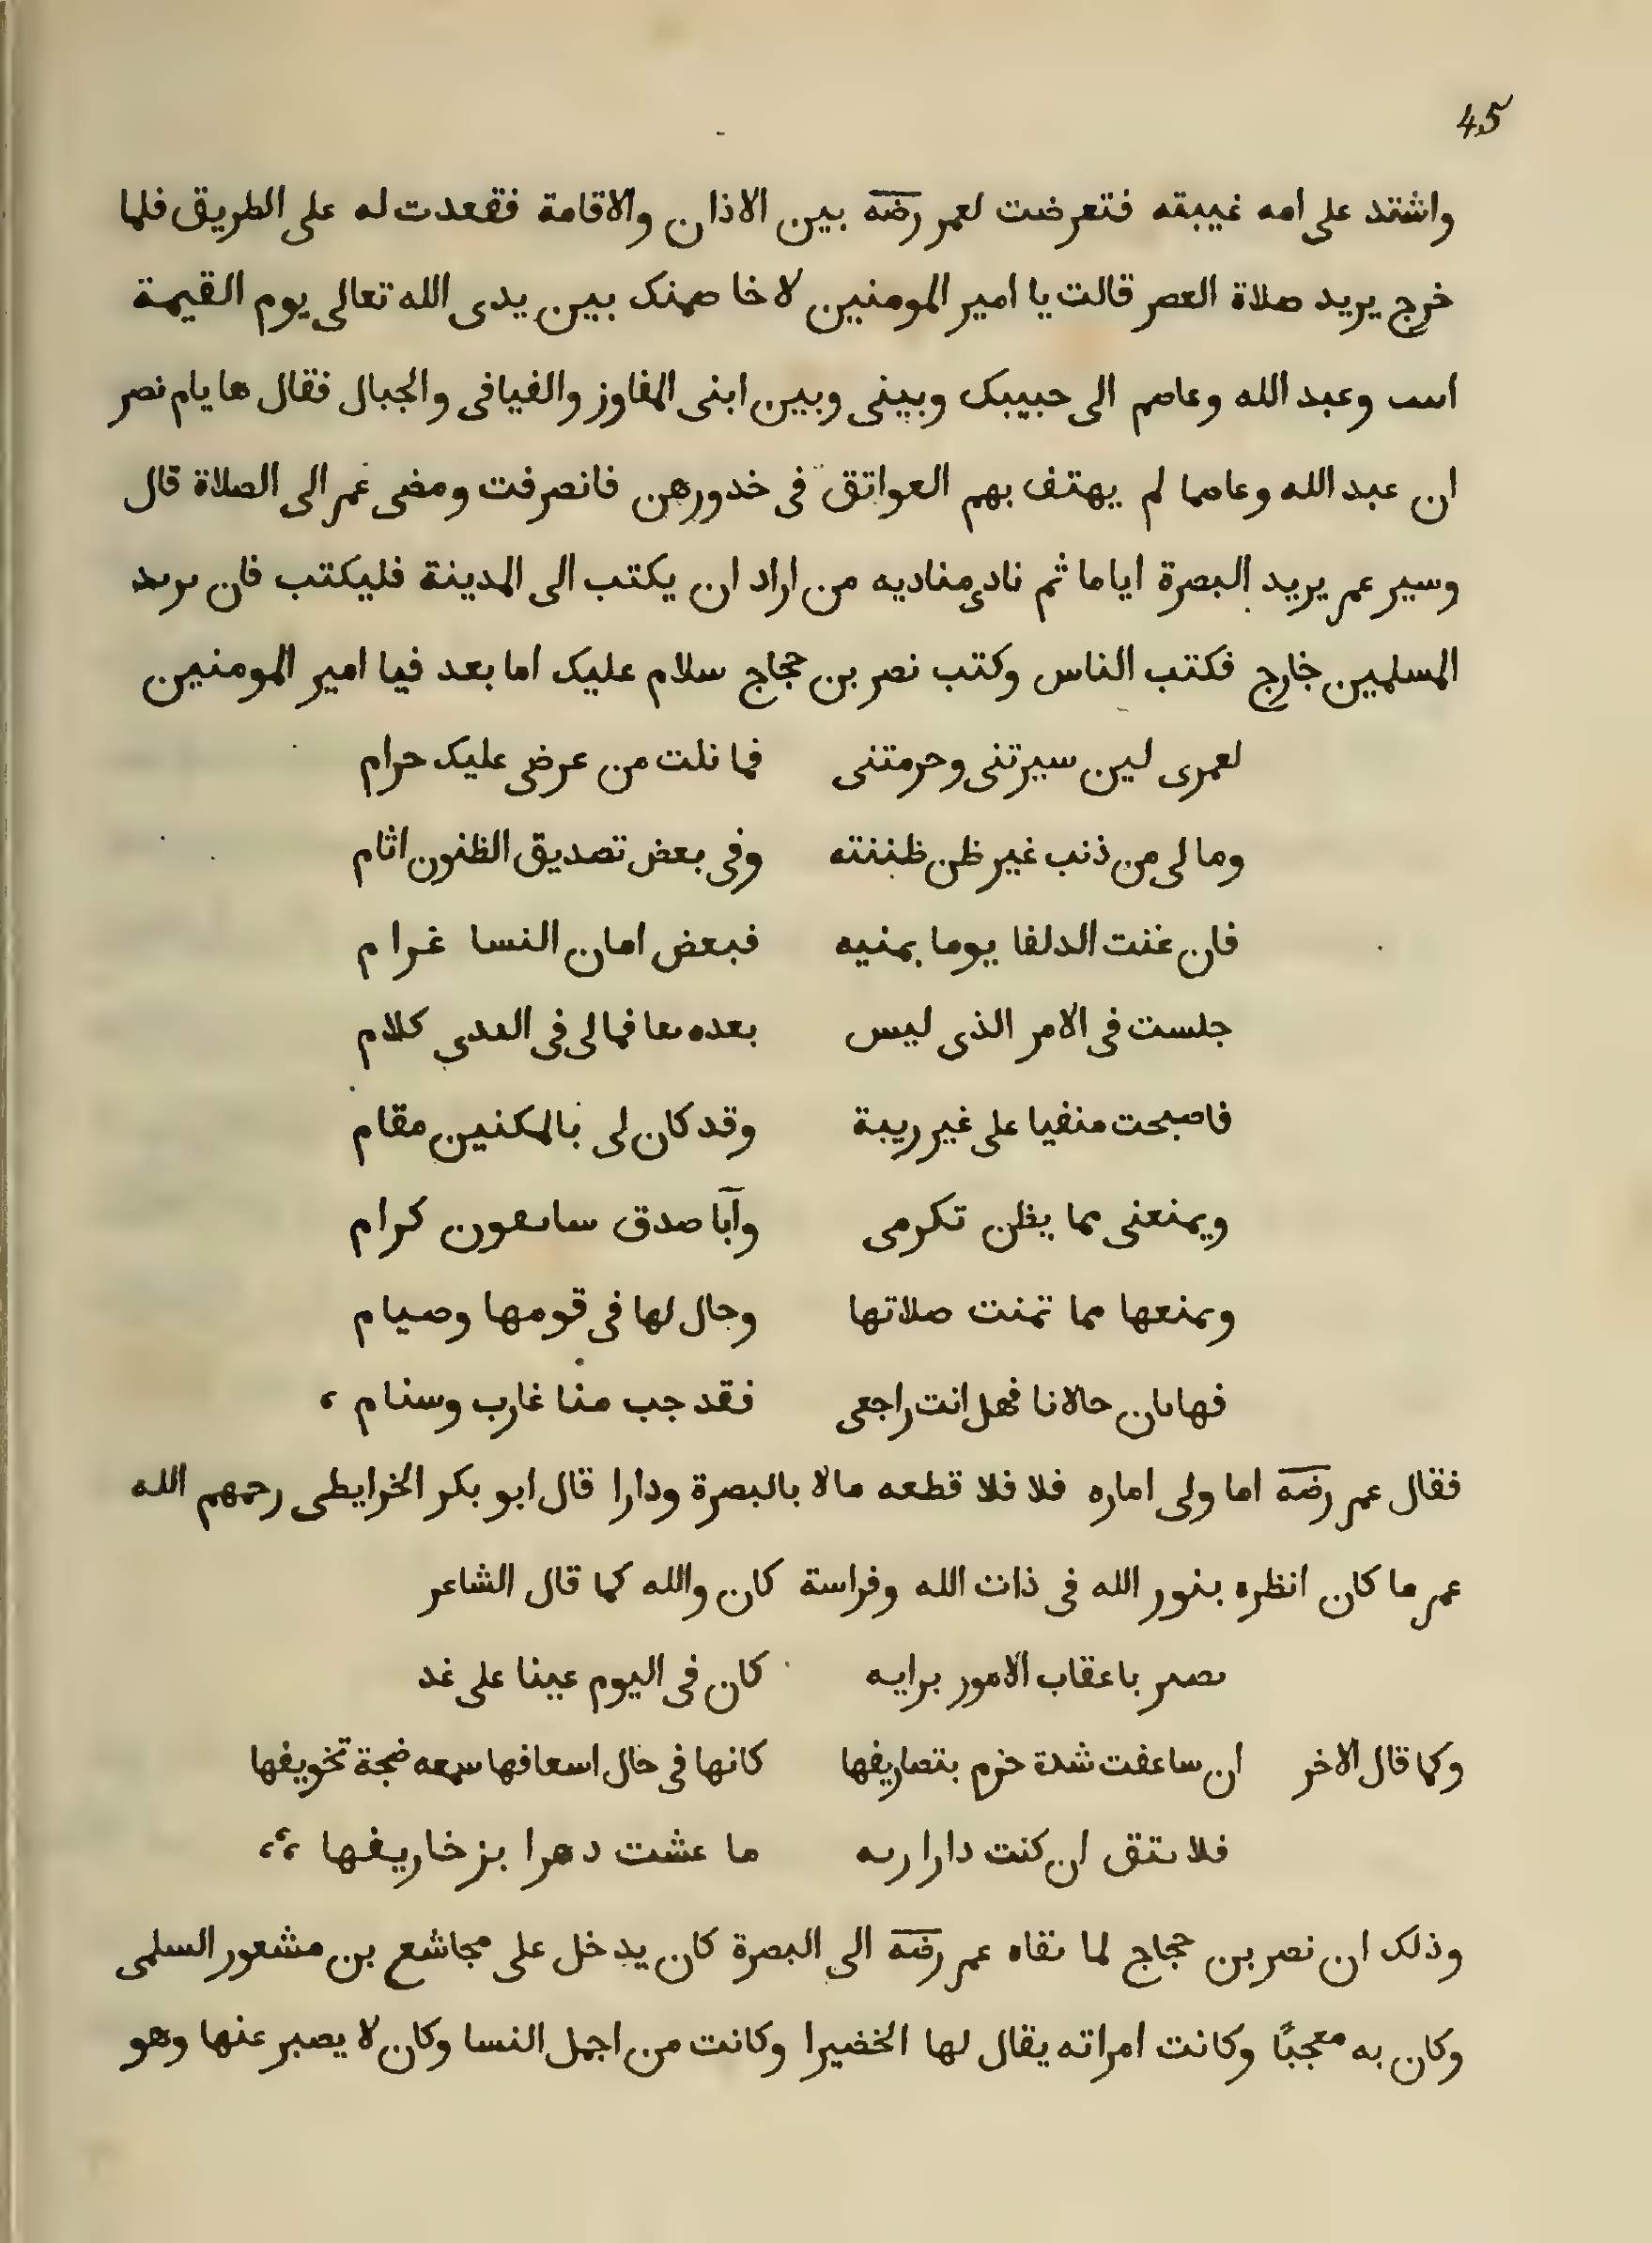 45
واشتد على امه غيبته فتعرضت لعمر رضه بين الاذان والاقامة فقعدت له على الطريق فلما
خرج يريد صلاة العصر قالت يا امير المومنين لاخاصمنك بين يدى الله تعالى يوم القيمة
وعبد الله وعاصم الى حبيبك وبينى وبين ابنى المفاوز والفيافى والجبال فقال ها يام نصر
ان عبد الله وعاصما لم يهتف بهم العواتق فى خدورهن فانصرفت ومضى عمر الى الصلاة قال
وسير عمر يريد البصرة اياما ثم نادى مناديه من اراد ان يكتب الى المدينة فليكتب فان بريد
المسلمين خارج فكتب الناس وكتب نصر بن حجاج سلام عليك اما بعد فيا امير المومنين
لعمرى لين سيرتنى وحرمتنى فما نلت من عرضى عليك حرام
وما لى من ذنب غير ظن ظننته وفى بعض تصديق الظنون اثام
فان غنت الدلفا يوما بمنيه فبعض امان النسا غرام
جلست فى الامر الذى ليس بعده فما لى فى كلام
فاصبحت منفيا على غير ريبة وقد كان لى بالمكنين مقام
ويمنعنى مما يظن تكرمى وآبا صدق سابعون كرام
ويمنعها مما تمنت صلاتها وحال لها فى قومها وصيام
فهاتان حالانا فهل انت راجعى فقد جب منا غارب وسنام ،
فقال عمر رضه اما ولى اماره فلا فلا قطعه مالا بالبصرة ودارا قال ابو بكر الخرايطى رحمهم الله
عمر ما كان انظره بنور الله فى ذات الله وفراسة كان والله كما قال الشاعر
بصير باعقاب الامور برايه كان فى اليوم عينا على غد
وكما قال الاخر ان ساعفت شدة خزم بتصاريفها كانها فى حال اسعافها ضجة تخويفها
فلا تتق ان كنت دارا ما عشت دهرا بزخاريفها ،،،
وذلك ان نصر بن حجاج لما نفاه عمر رضه الى البصرة كان يدخل على مجاشع بن مشعور السلمى
وكان به معجبًا وكانت امراته يقال لها الخضيرا وكانت من اجمل النسا وكان لا يصبر عنها وهو